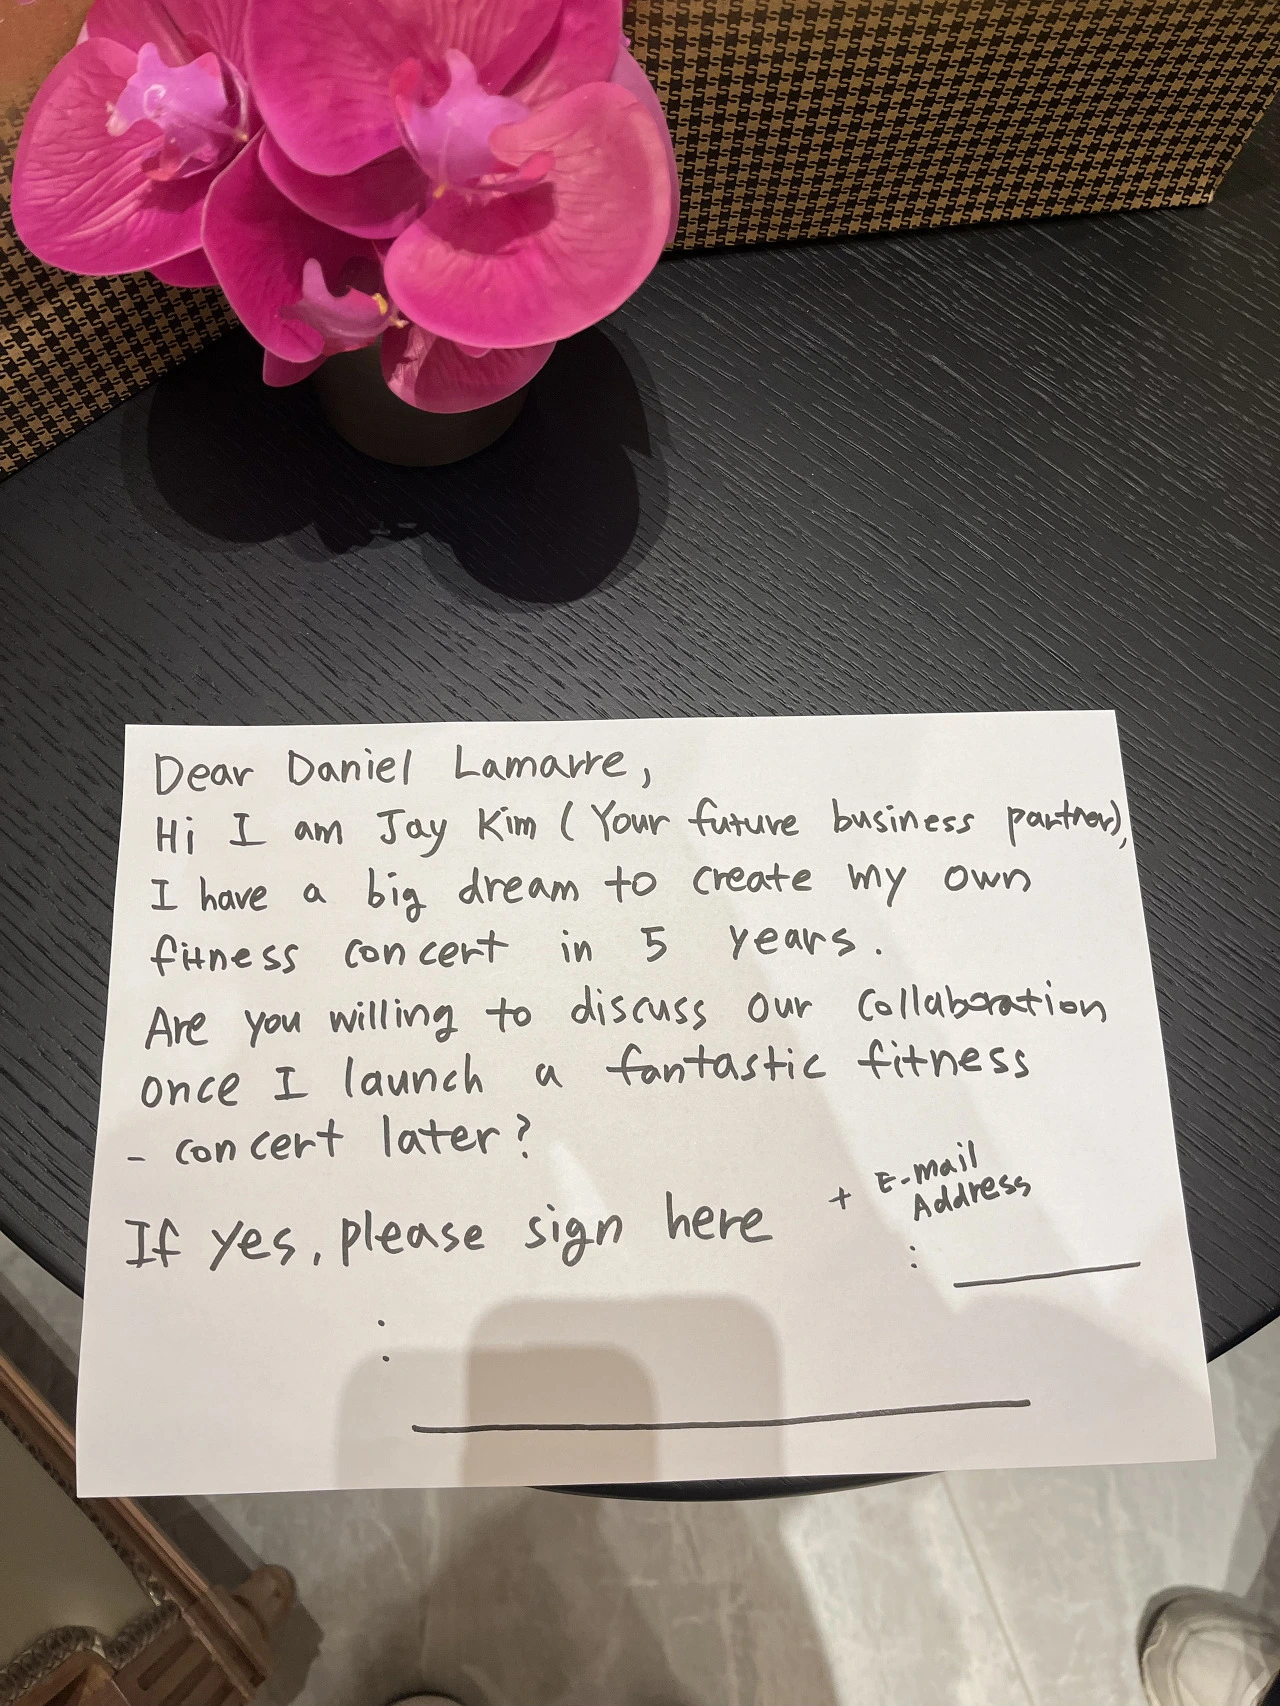 Dear Daniel Lamarre,
Hi I am Jay Kim (Your future business partner),
I have a big dream to create my own
fitness concert in 5 years.
Are you willing to discuss our collaboration
once I launch a fantastic fitness
- concert later?
If yes, please sign here + E-mail
Address
:
: